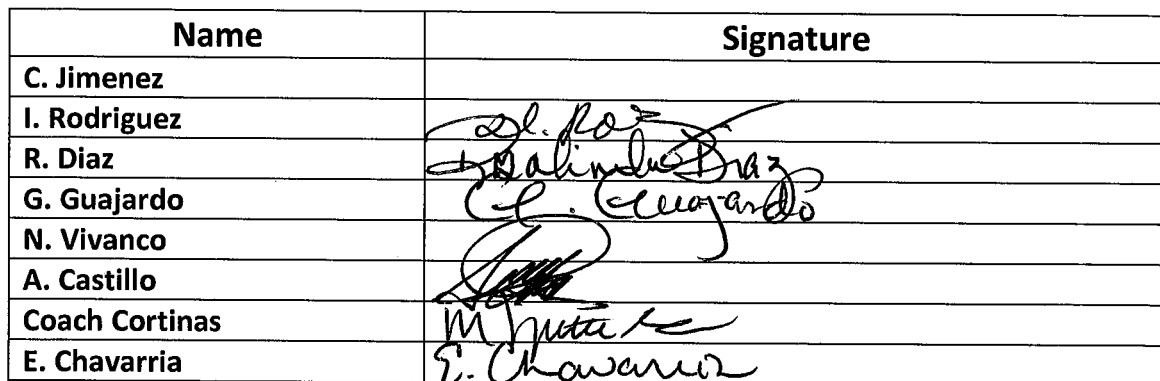 Name Signature
C. Jimenez
I. Rodriguez
R. Diaz Rosalinda Diaz
G. Guajardo G. Guajardo
N. Vivanco
A. Castillo
Coach Cortinas
E. Chavarria E. Chavarria